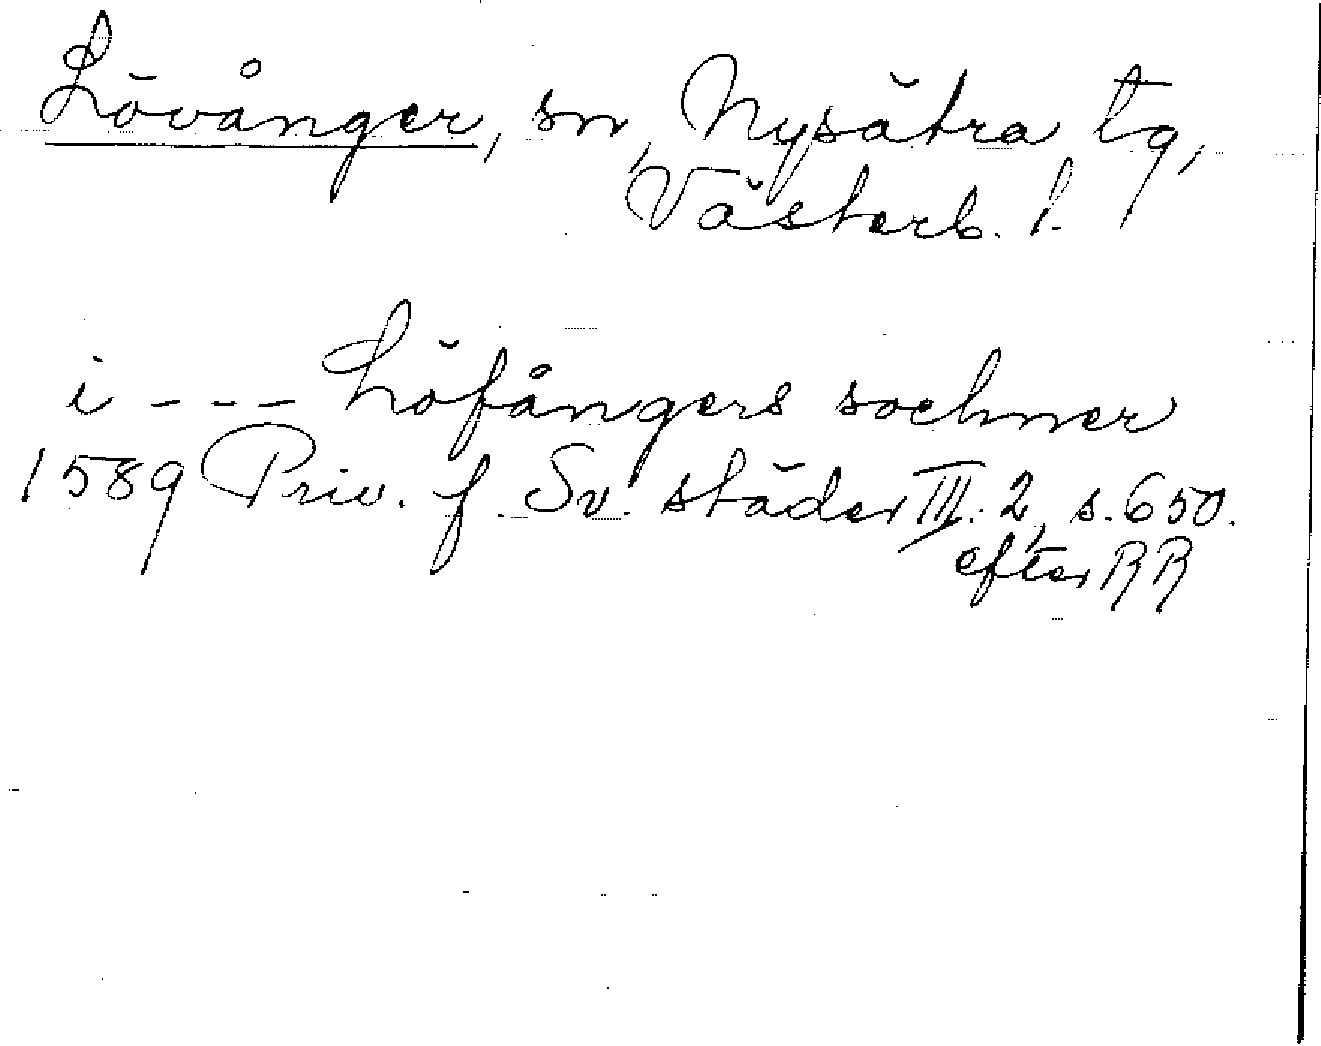 Lövånger, sn, Nysätra tg,
Västerb. l.
i - - - Löfångers sochner
1589 Priv. f. Sv. städer III. 2, s. 650.
efter RR